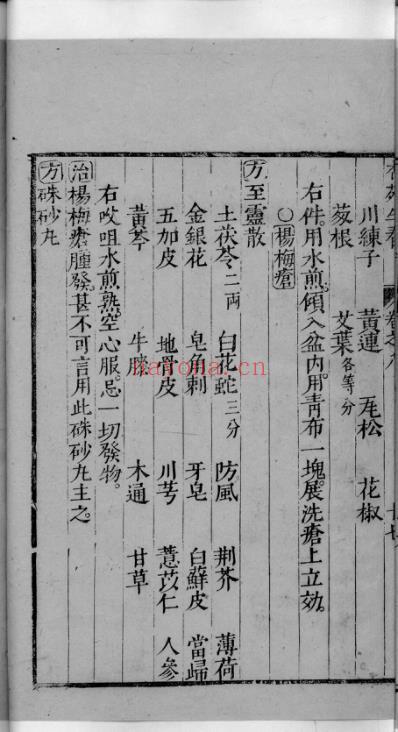 川練子　黃連　瓦松　花椒
菱根　艾葉各等分
右件用水煎傾入盆內用青布一塊展洗瘡上立效
○楊梅瘡
方至靈散
土茯苓二両　白花蛇三分　防風　荆芥　薄荷
金銀花　皂角刺　牙皂　白蘚皮　當歸
五加皮　地骨皮　川芎　薏苡仁　人參
黃芩　牛膝　木通　甘草
右㕮咀水煎熟空心服忌一切發物
治楊梅瘡腫發甚不可言用此硃砂丸主之
方硃砂丸